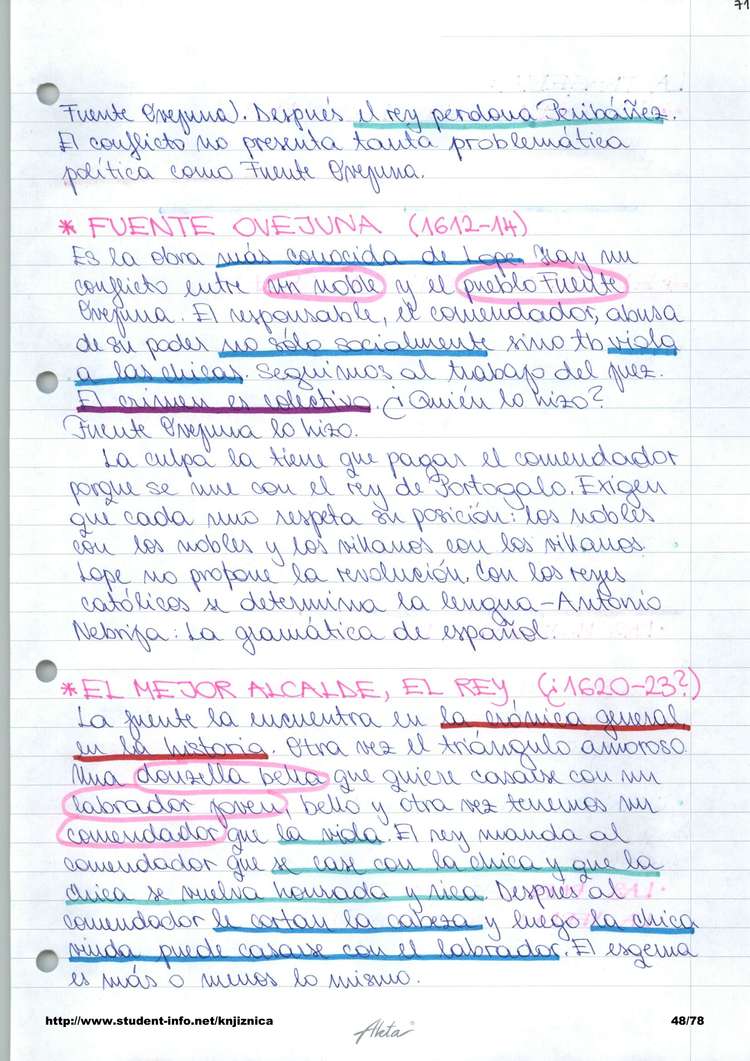 71
Fuente Ovejuna). Después el rey perdona Peribáñez.
El conflicto no presenta tanta problemática
política como Fuente Ovejuna.
* FUENTE OVEJUNA (1612-14)
Es la obra más conocida de Lope. Hay un
conflicto entre un noble y el pueblo Fuente
Ovejuna. El responsable, el comendador, abusa
de su poder no sólo socialmente sino tb viola
a las chicas. Seguimos al trabajo del juez.
El crimen es colectivo. ¿Quién lo hizo?
Fuente Ovejuna lo hizo.
La culpa la tiene que pagar el comendador
porque se une con el rey de Portogalo. Exigen
que cada uno respeta su posición: los nobles
con los nobles y los villanos con los villanos.
Lope no propone la revolución. Con los reyes
católicos se determina la lengua - Antonio
Nebrija: La gramática de español.
* EL MEJOR ALCALDE, EL REY (¿1620-23?)
La fuente la encuentra en la crónica general
en la historia. Otra vez el triángulo amoroso.
Una donzella bella que quiere casarse con un
labrador joven, bello y otra vez tenemos un
comendador que la viola. El rey manda al
comendador que se case con la chica y que la
chica se vuelva honrada y rica. Después al
comendador le cortan la cabeza y luego la chica
viuda puede casarse con el labrador. El esgema
es más o menos lo mismo.
http://www.student-info.net/knjiznica
Akta
48/78